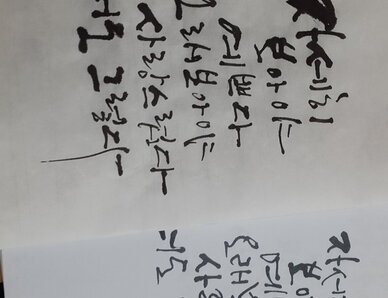 자세히
보아야
예쁘다
오래 보아야
사랑스럽다
너도 그렇다
자세
보아
예
오래
사랑
너도